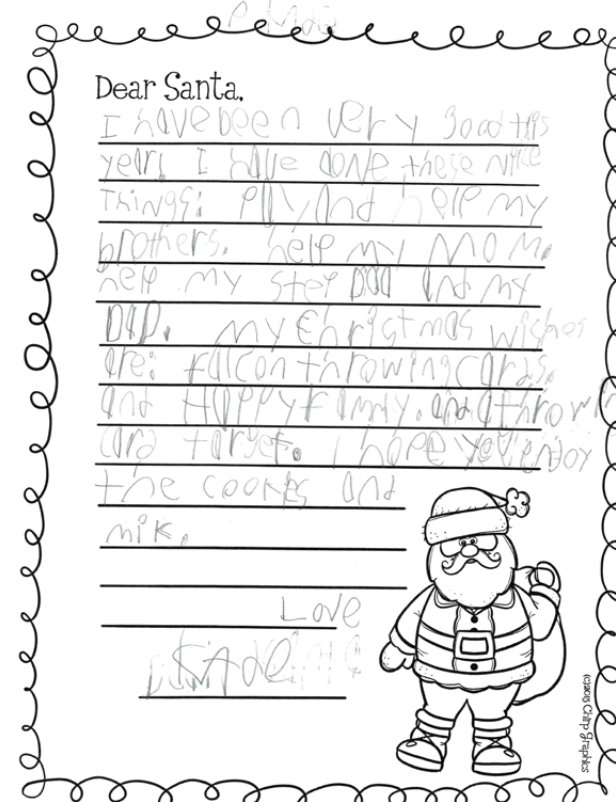 Dear Santa,
I have been very good this
year. I have done these nice
things: Play and help my
brothers. help my Mom.
help my step Dad and my
DaD. my Christmas wishes
are: falcon throwing cards,
and Happy family. and a throwing
card target. I hope you enjoy
the cookes and
milk.
Love
KAde
(c)2015 Chirp Graphics